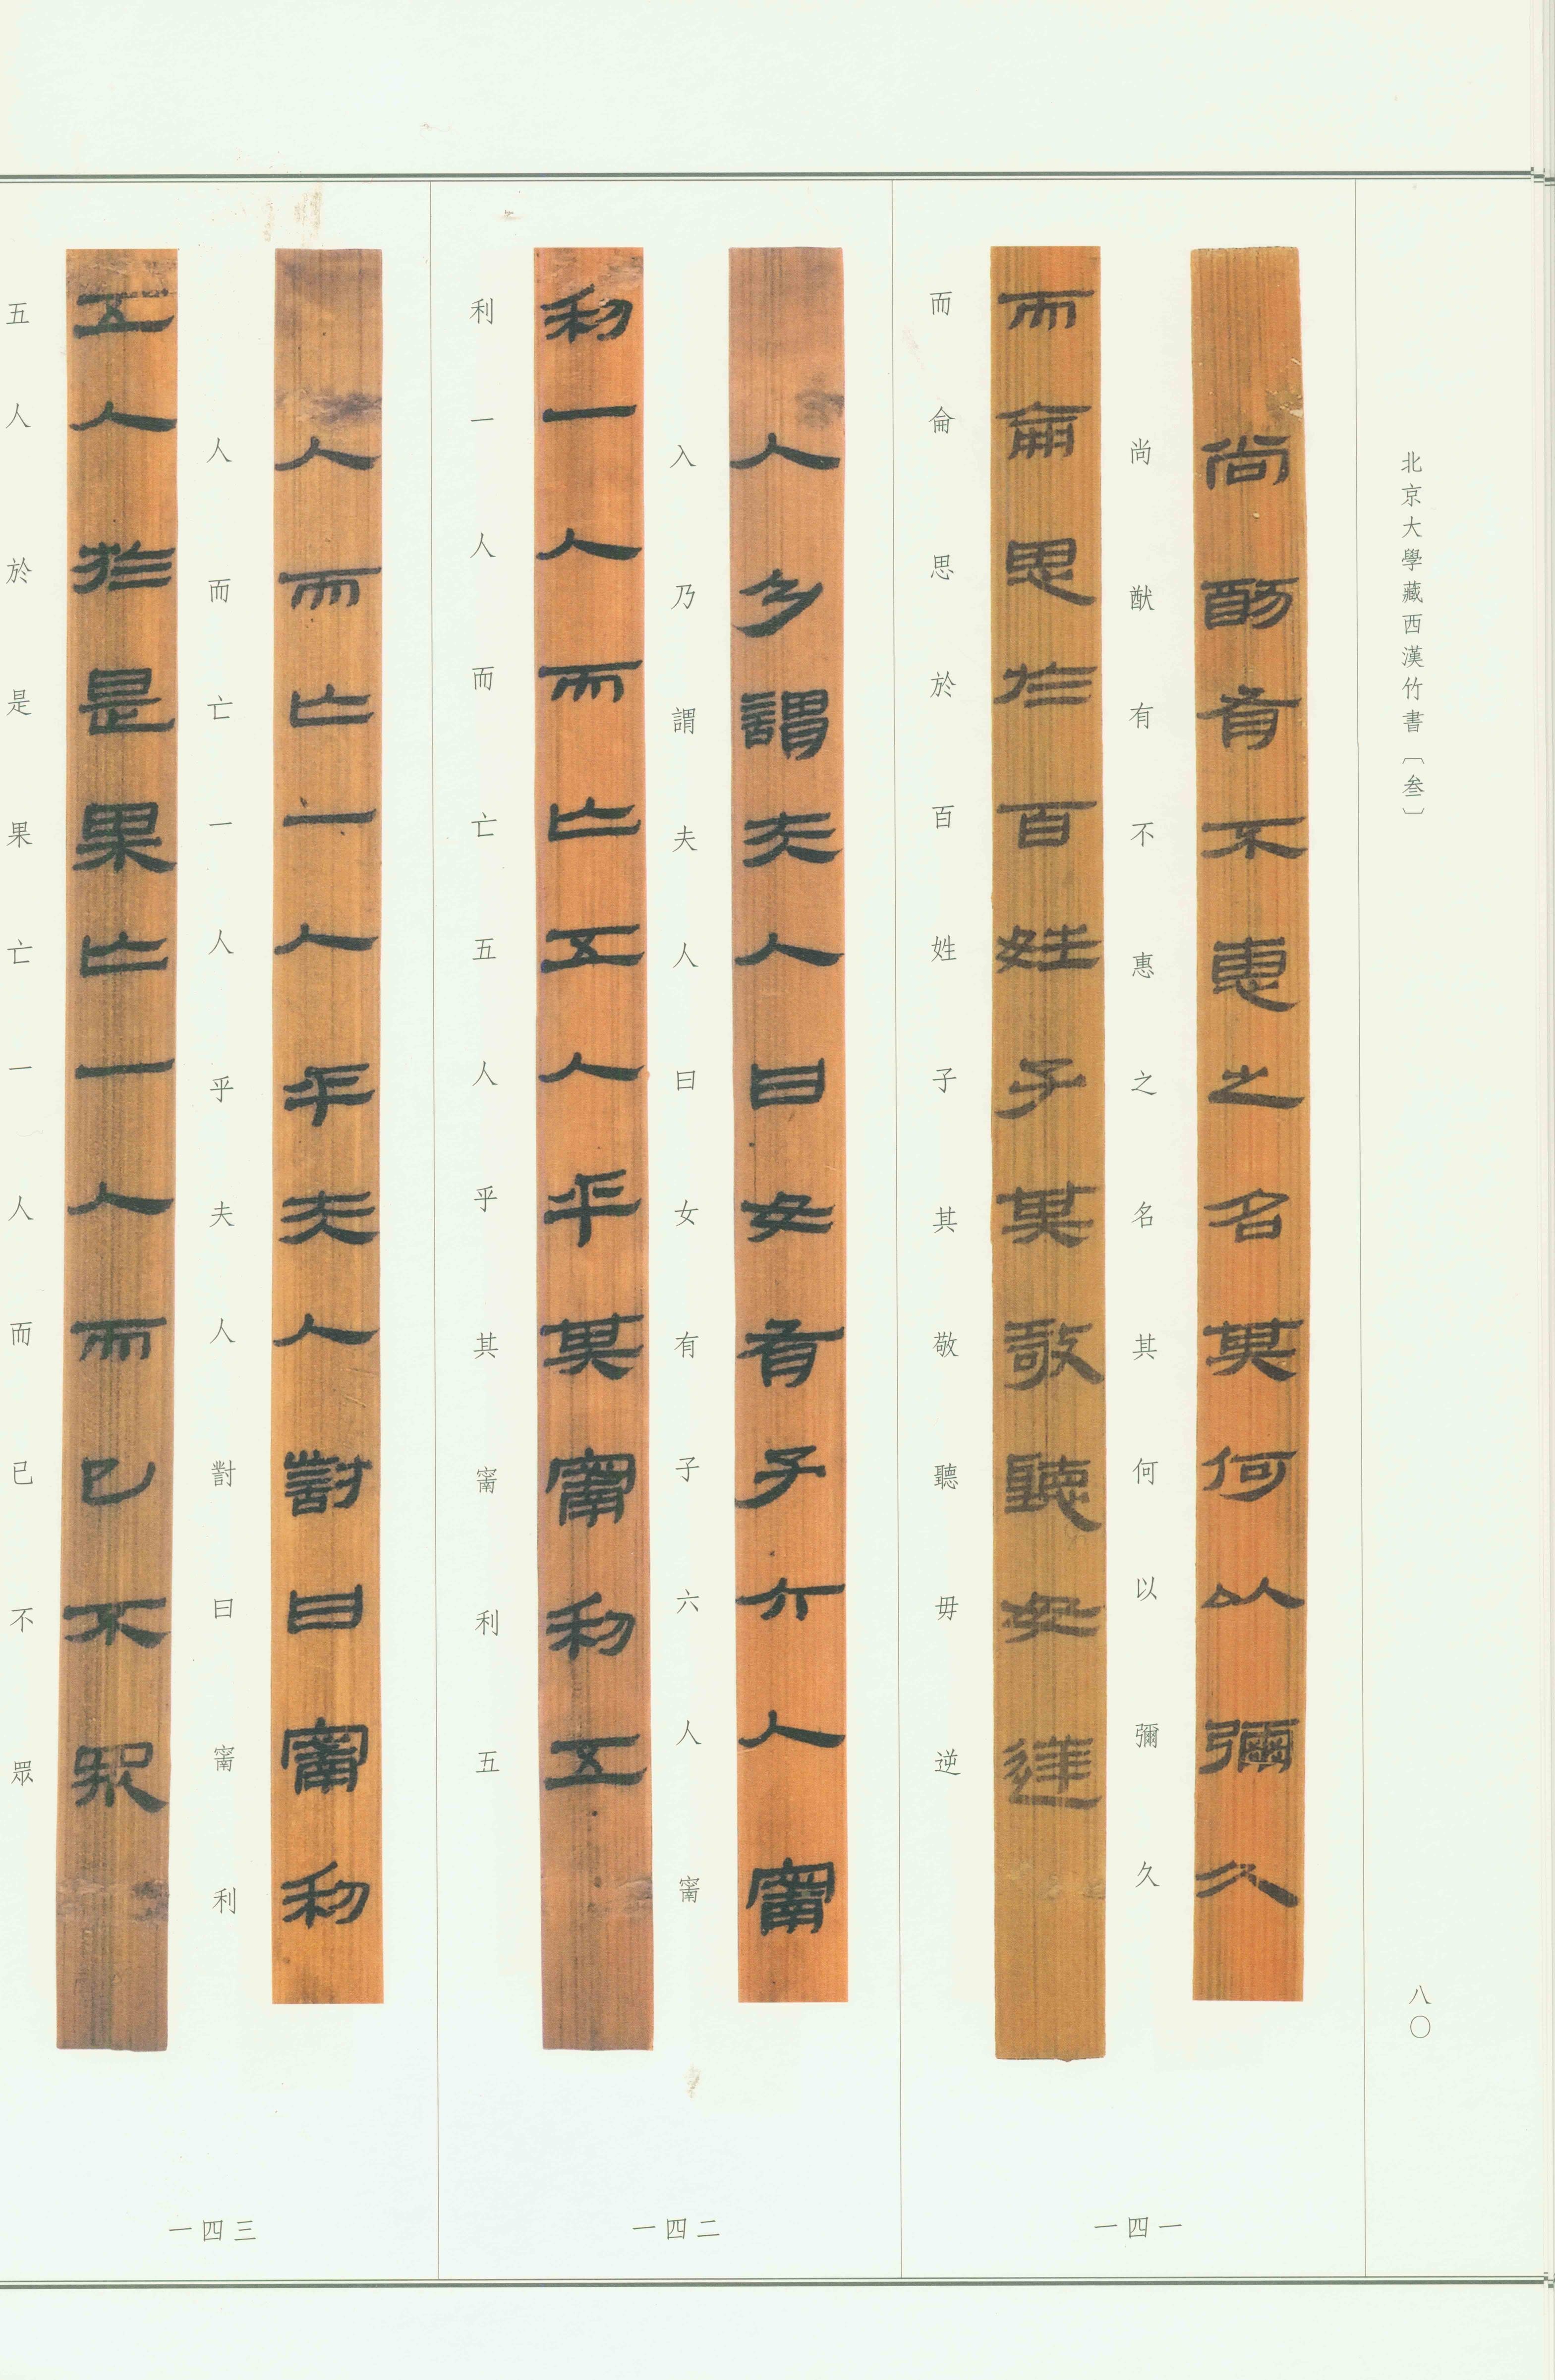 北京大學藏西漢竹書〔叁〕
八〇
尚猷有不惠之名其何以彌久
尚猷有不惠之名其何以彌久
而侖思於百姓子其敬聽毋逆
而侖思於百姓子其敬聽毋逆
一四一
人乃謂夫人曰女有子六人甯
入乃謂夫人曰女有子六人甯
利一人而亡五人乎其甯利五
利一人而亡五人乎其甯利五
一四二
人而亡一人乎夫人對曰甯利
人而亡一人乎夫人對曰甯利
五人於是果亡一人而已不眾
五人於是果亡一人而已不眾
一四三